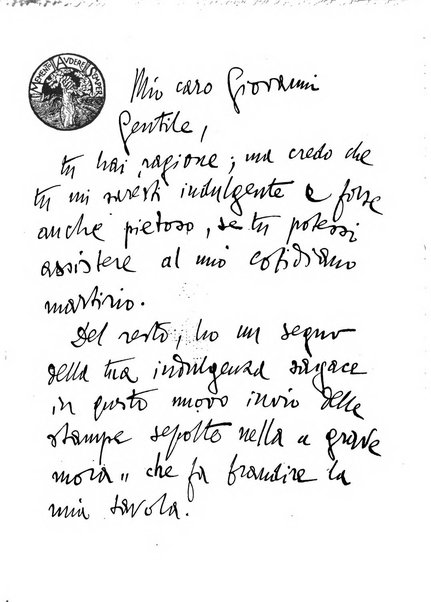 MEMENTO AUDERE SEMPER
Mio caro Giovanni
Gentile,
tu hai ragione; ma credo che
tu mi saresti indulgente e forse
anche pietoso, se tu potessi
assistere al mio cotidiano
martirio.
Del resto, ho un segno
della tua indulgenza sagace
in questo nuovo invio delle
stampe sepolte nella "grave
mora" che fa
la
mia tavola.